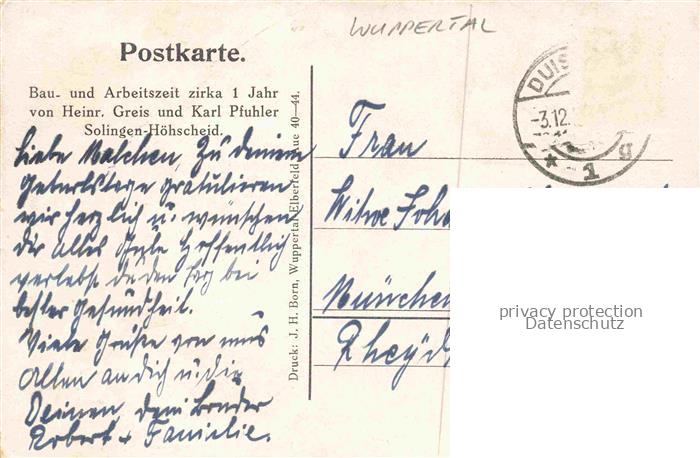 WUPPERTAL
Postkarte.
Bau- und Arbeitszeit zirka 1 Jahr
von Heinr. Greis und Karl Pfuhler
Solingen-Höhscheid.
Liebe Malchen, Zu deinem
Geburtstage gratulieren
wir herzlich u. wünschen
dir alles Gute Hoffentlich
verlebst du den Tag bei
bester Gesundheit.
Viele Grüße von uns
Allen an dich u. die
Deinen, dein Bruder
Robert + Familie.
Druck: J. H. Born, Wuppertal-Elberfeld, Aue 40-44.
DUIS
-3.12.
* 1 g
Frau
Witwe Joha
München
Rheyd
privacy protection
Datenschutz